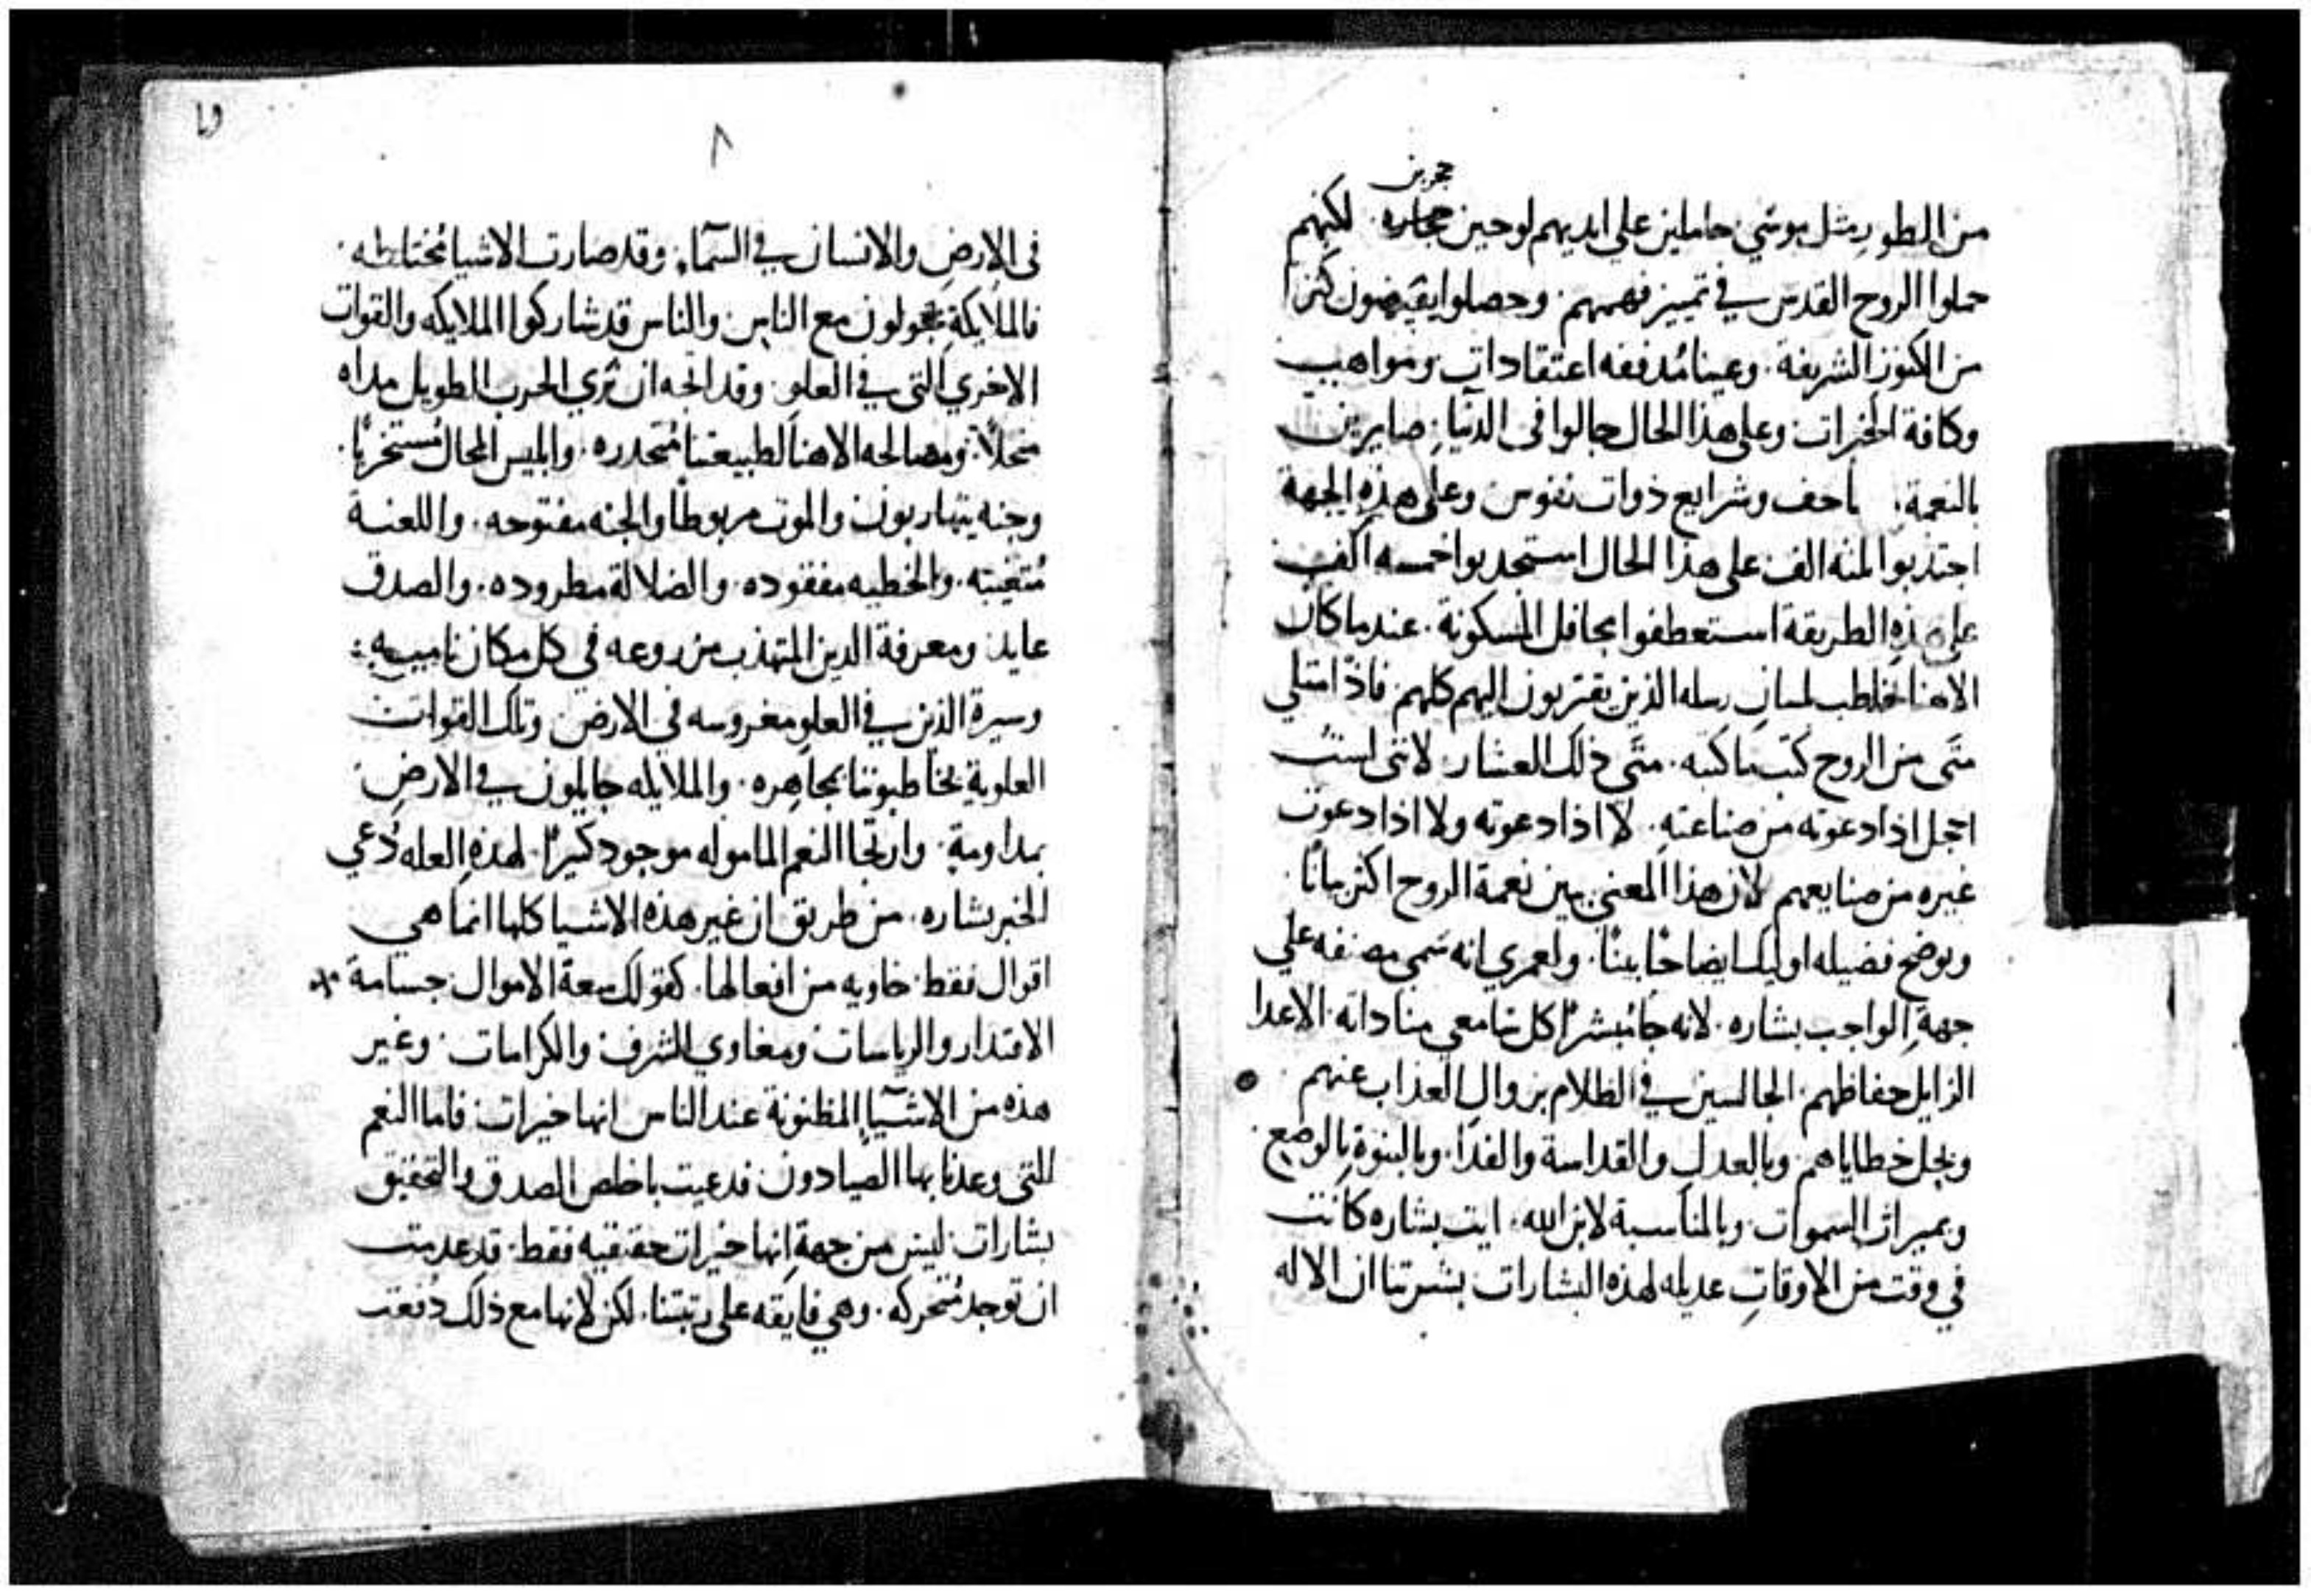 حجرين
من الطور مثل موسي حاملين علي ايديهم لوحين حجاره. لكنهم
حملوا الروح القدس في تمييز فهمهم. وحصلوا يفيضون كنزا
من الكنوز الشريفة. وعينا مُدفقه اعتقادات ومواهب
وكافة الخيرات وعلي هذا الحال جالوا في الدنيا. صايرين
بالنعمة. مصاحف وشرايع ذوات نفوس وعلي هذه الجهة
اجتذبوا الثلثه الف على هذا الحال استجدبوا خمسه الف
علي هذه الطريقة استعطفوا محافل المسكونة. عندما كان
الاهنا يخاطب بلسان رسله الذين يقتربون اليهم كلهم. فاذ امتلي
متَى من الروح كتب ما كتبه. متَى ذلك العشار لانني لست
اخجل اذا دعوته من صناعته. لا اذا دعوته ولا اذا دعوت
غيره من صنايعهم لان هذا المعني يبين نعمة الروح اكثر بيانًا
ويوضح فضيله اوليك ايضاحًا بينًا. ولعمري انه سَمي مصنفه علي
جهةِ الواجب بشاره. لانه جا مُبشرًا كل سامعي مناداته. الاعدا
الزايل حفاظهم. الجالسين في الظلام بزوالِ العذاب عنهم
وبحل خطاياهم. وبالعدل والقداسة والفدا. وبالبنوةِ بالوضع
وبميراث السموات وبالمناسبة لابن الله. ايت بشاره كانت
في وقت من الاوقاتِ عديله لهذه البشارات بشرتنا ان الاله
٨
في الارضِ والانسان في السمآء. وقد صارت الاشيا مُختلطه.
فالملايكةِ يجولون مع الناس والناس قد شاركوا الملايكه والقوات
الاخري التي في العلوِ. وقد اتجه ان تري الحرب الطويل مداه
منحلاً. ومصالحه الاهنا لطبيعتنا مُتحدره. وابليس المحال مُستخزيًا.
وجنه يتهاربون والموت مربوطًا والجنه مفتوحه. واللعنة
مُتغيبته. والخطيه مفقوده. والضلالة مطروده. والصدق
عايد ومعرفة الدين المتهذب مزروعه في كل مكان ناميه
وسيرة الذين في العلوِ مغروسه في الارض وتلك القوات
العلوية تخاطبوننا بمجاهره. والملايكه جايلون في الارضِ
بمداومةٍ. وارتجا النعم الماموله موجود كثيرًا. لهذهِ العله دُعي
الخبر بشاره. من طريق ان غير هذه الاشيا كلها انما هي
اقوال فقط خاويه من افعالها. كقولك سعة الاموال جسامة
الاقتدار والرياسات ومغاوي الشرف والكرامات وغير
هذه من الاشيآ المظنونة عند الناس انها خيرات. فاما النعم
التي وعدنا بها الصيادون فدعيت باخلص الصدق والتحقيق
بشارات. ليس من جهةِ انها خيرات حقيقيه فقط. قد عدمت
ان توجد مُتحركه. وهي فايقه على رتبتنا. لكن لانها مع ذلك دُفعت